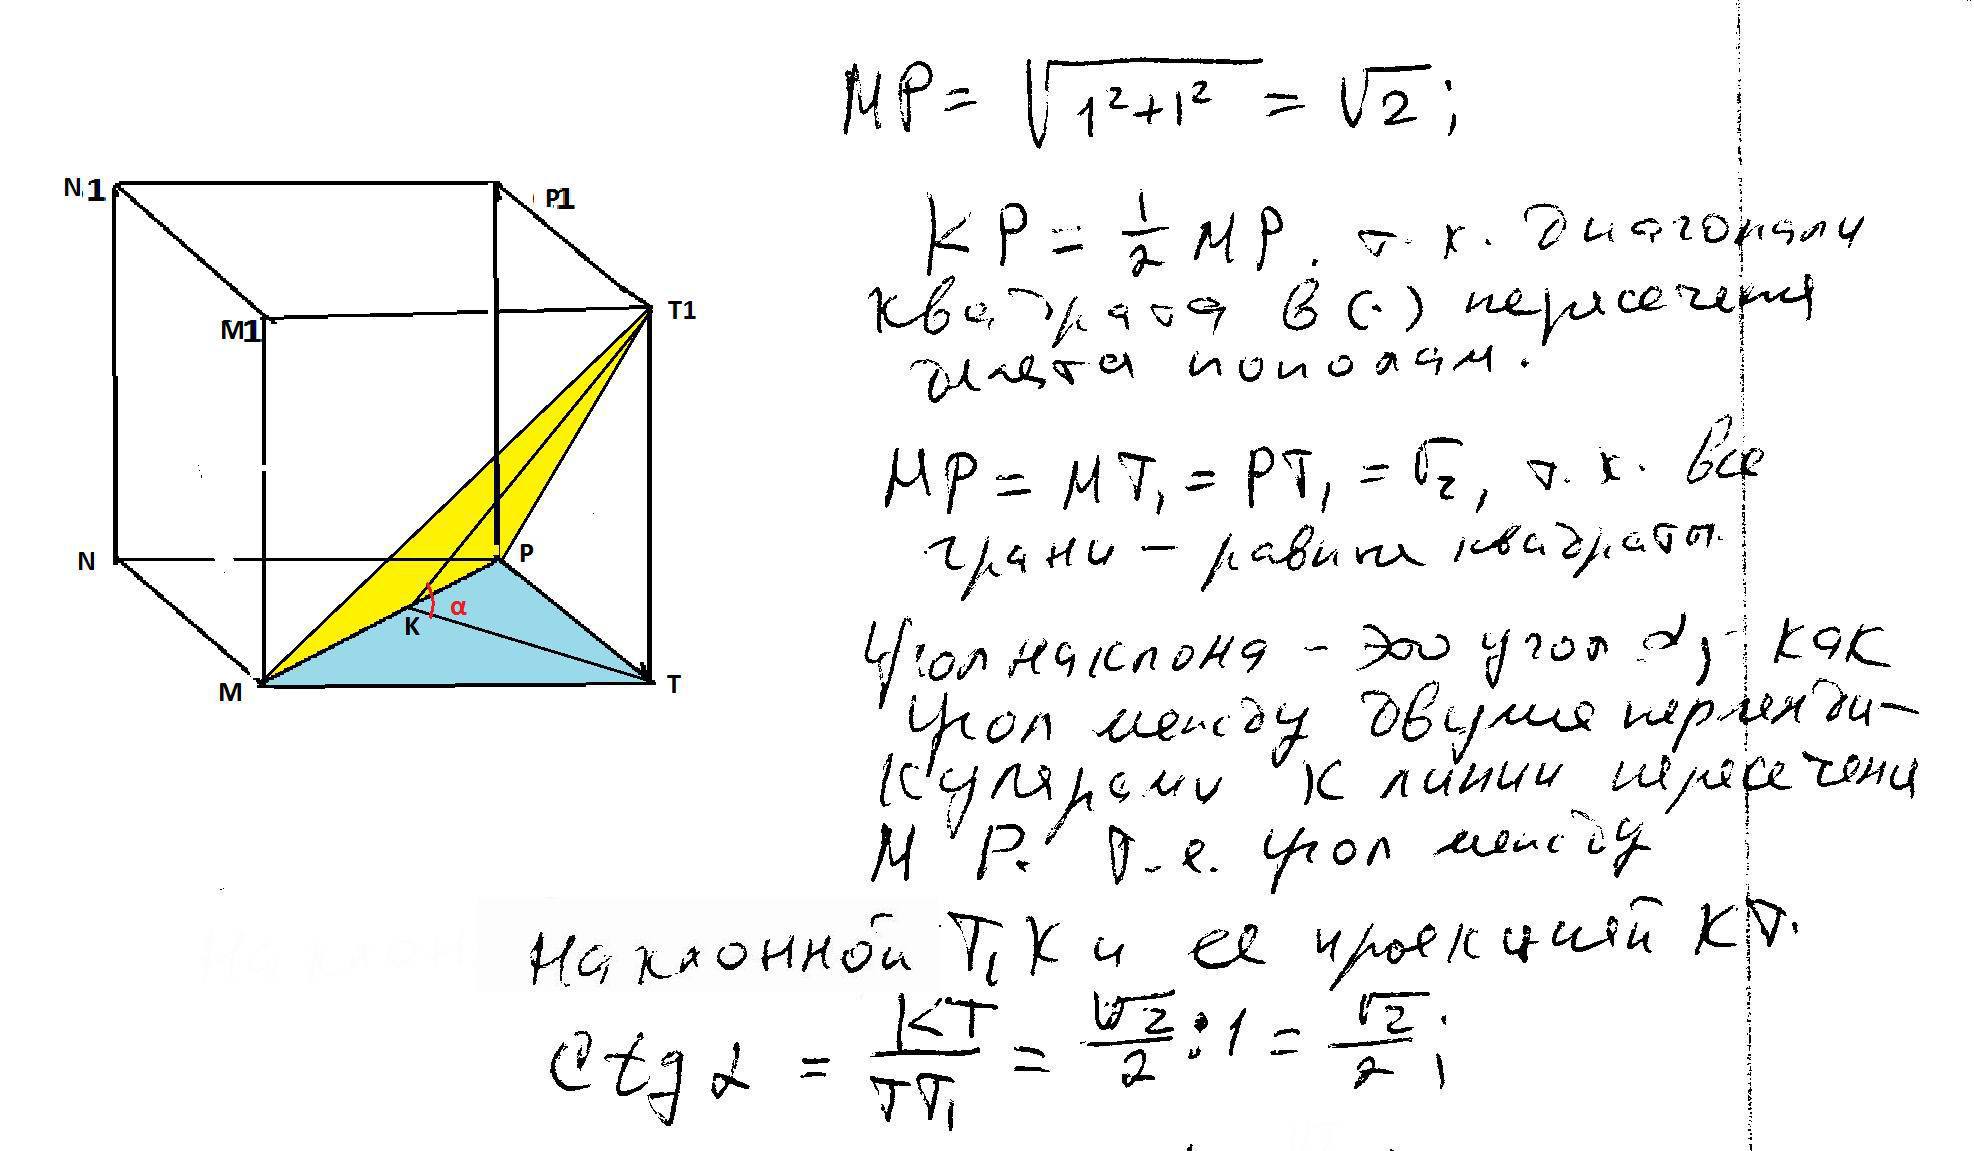 N1
P1
M1
T1
N
P
α
K
M
T
MP = √1²+1² = √2;
KP = 1/2 MP. т.к. диагонали
квадрата в (·) пересечения
делятся пополам.
MP = MT₁ = PT₁ = √2, т.к. все
грани – равные квадраты.
Угол наклона – это угол α, - как
угол между двумя перпенди-
кулярами к линии пересечения
MP. т.е. угол между
наклонной T₁K и ее проекцией KT.
Ctg α = KT/TT₁ = √2/2 : 1 = √2/2;